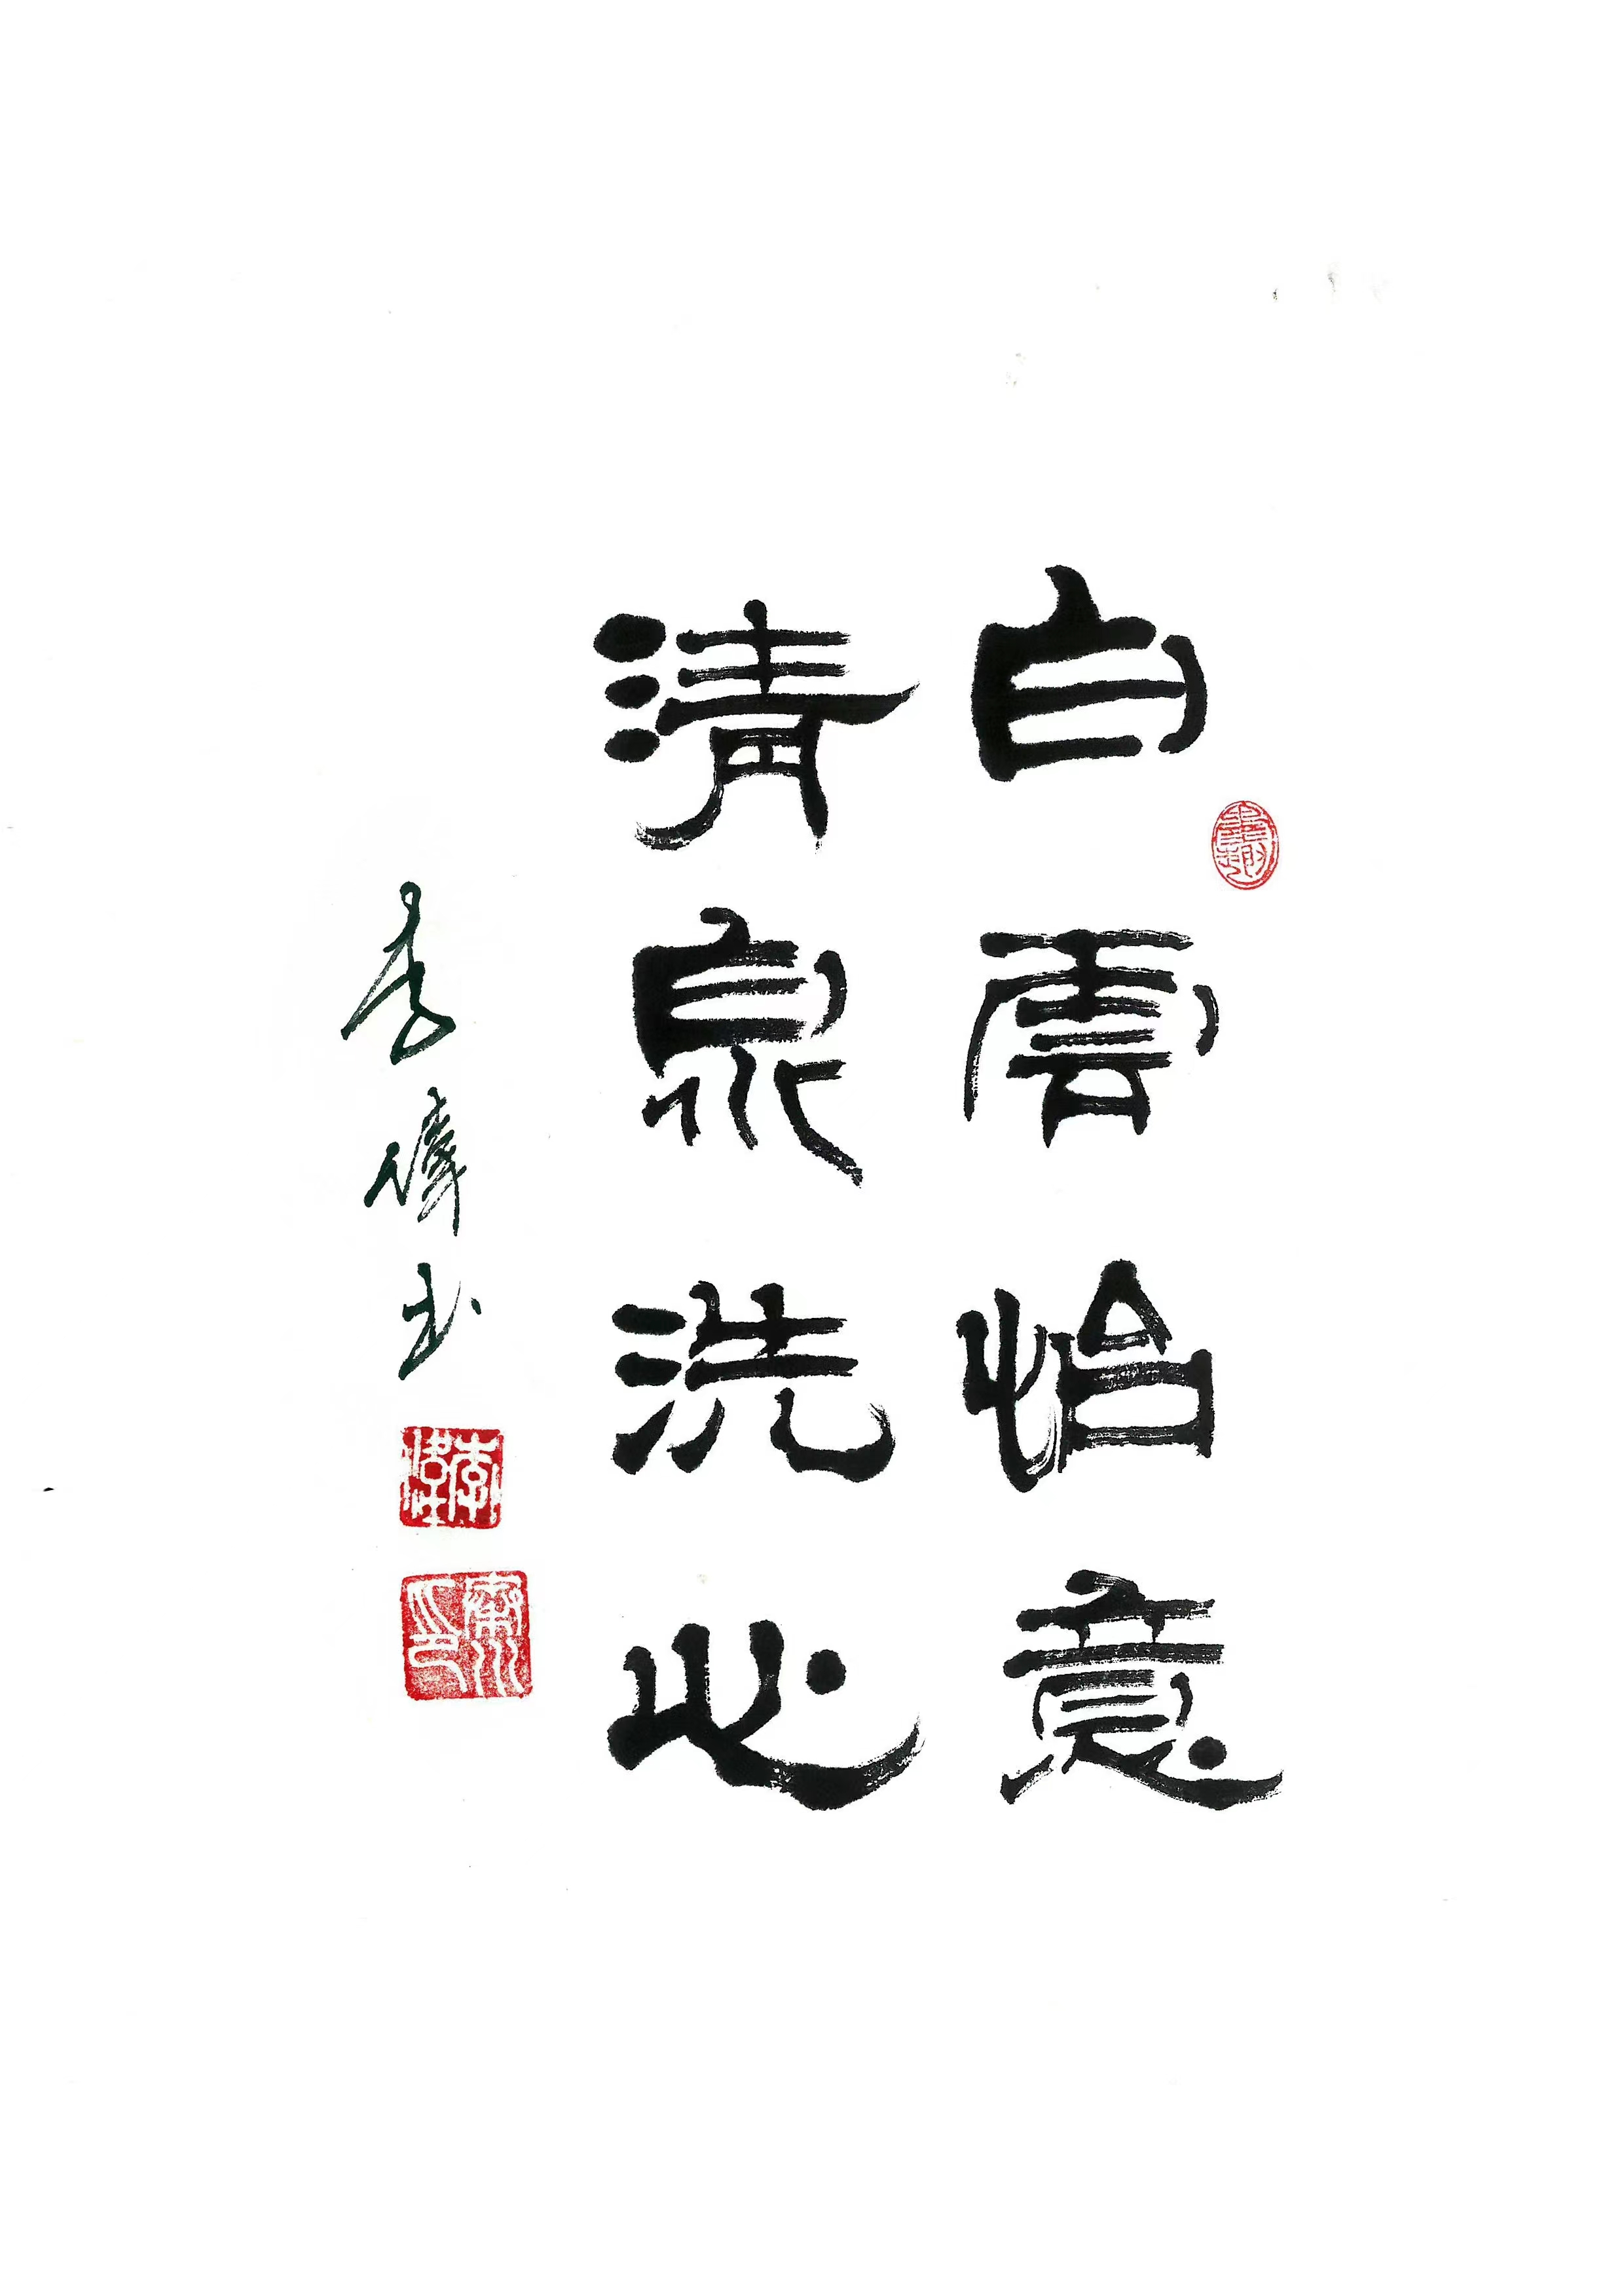 白雲怡意
清泉洗心
李偉书